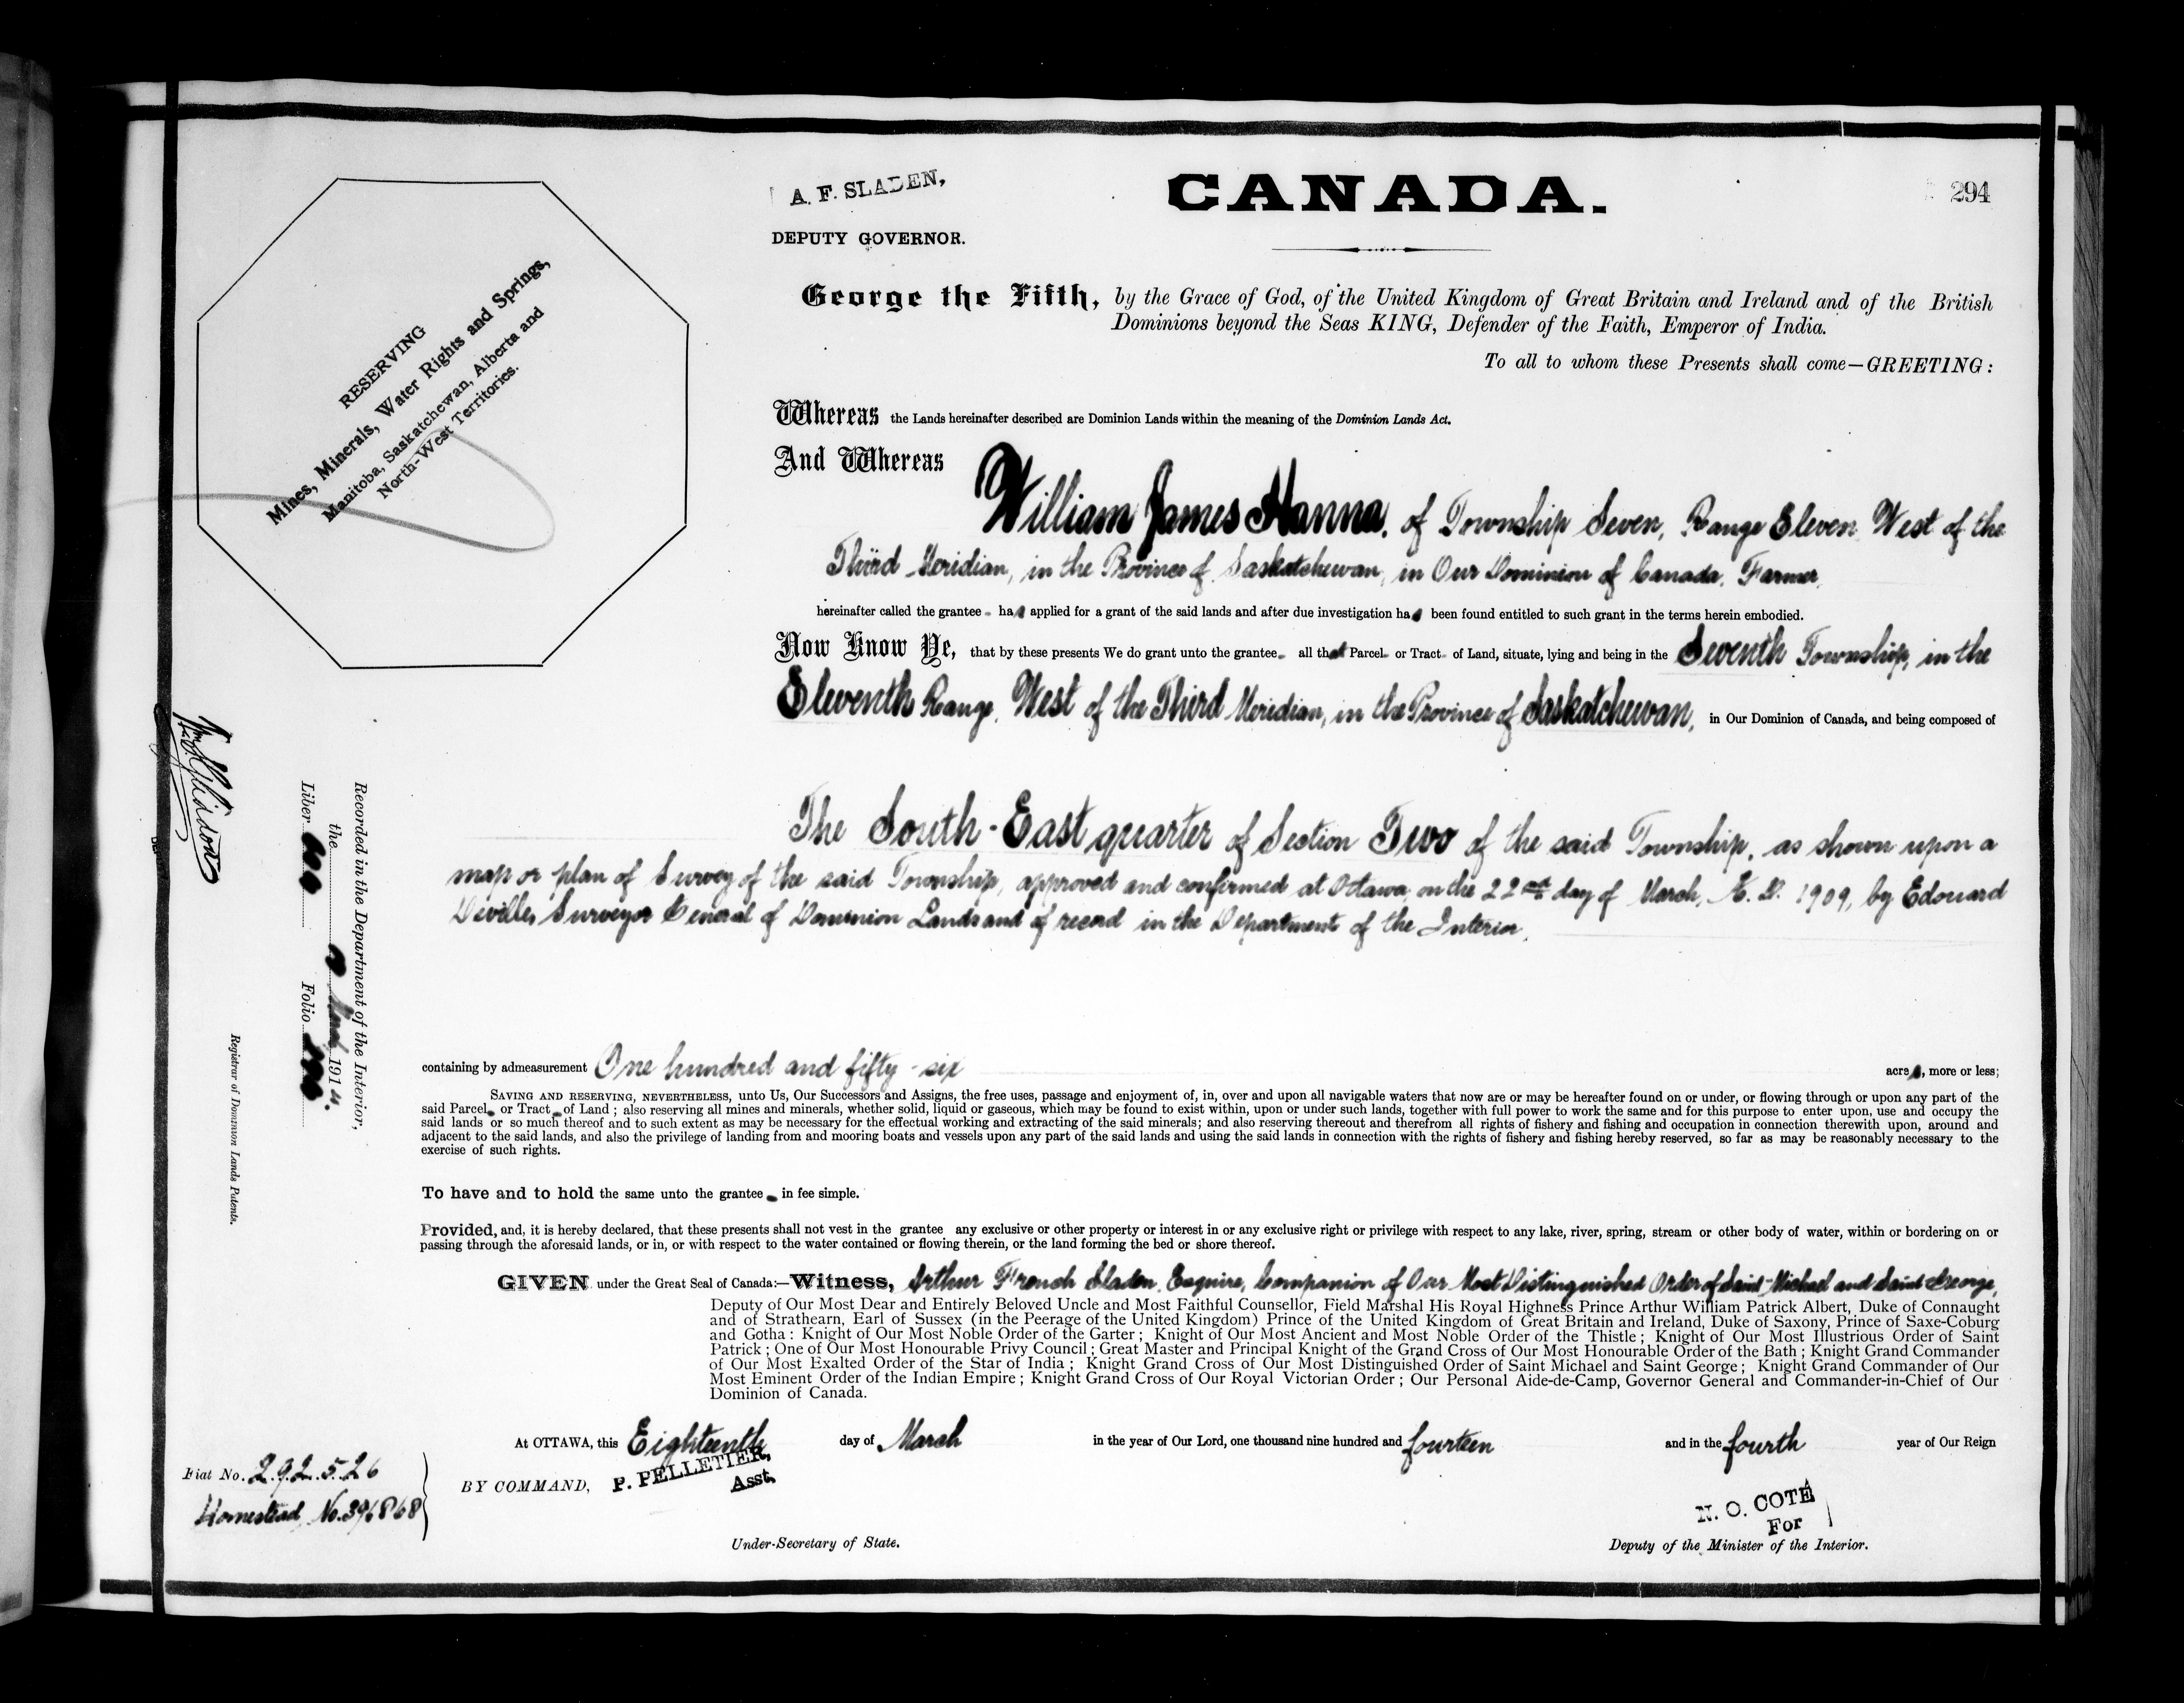 A. F. SLADEN,
DEPUTY GOVERNOR.
CANADA.
294
RESERVING
Mines, Minerals, Water Rights and Springs,
Manitoba, Saskatchewan, Alberta and
North-West Territories.
George the Fifth, by the Grace of God, of the United Kingdom of Great Britain and Ireland and of the British
Dominions beyond the Seas KING, Defender of the Faith, Emperor of India.
To all to whom these Presents shall come—GREETING:
Whereas the Lands hereinafter described are Dominion Lands within the meaning of the Dominion Lands Act.
And Whereas
William James Hanna, of Township Seven, Range Eleven, West of the
Third Meridian, in the Province of Saskatchewan, in Our Dominion of Canada, Farmer,
hereinafter called the grantee has applied for a grant of the said lands and after due investigation has been found entitled to such grant in the terms herein embodied.
Now Know Ye, that by these presents We do grant unto the grantee all that Parcel or Tract of Land, situate, lying and being in the Seventh Township, in the
Eleventh Range, West of the Third Meridian, in the Province of Saskatchewan, in Our Dominion of Canada, and being composed of
The South-East quarter of Section Two of the said Township, as shown upon a
map or plan of Survey of the said Township, approved and confirmed at Ottawa, on the 22nd day of March, A. D. 1909, by Edouard
Deville, Surveyor General of Dominion Lands and of record in the Department of the Interior,
containing by admeasurement One hundred and fifty-six acres, more or less;
SAVING AND RESERVING, NEVERTHELESS, unto Us, Our Successors and Assigns, the free uses, passage and enjoyment of, in, over and upon all navigable waters that now are or may be hereafter found on or under, or flowing through or upon any part of the
said Parcel or Tract of Land; also reserving all mines and minerals, whether solid, liquid or gaseous, which may be found to exist within, upon or under such lands, together with full power to work the same and for this purpose to enter upon, use and occupy the
said lands or so much thereof and to such extent as may be necessary for the effectual working and extracting of the said minerals; and also reserving thereout and therefrom all rights of fishery and fishing and occupation in connection therewith upon, around and
adjacent to the said lands, and also the privilege of landing from and mooring boats and vessels upon any part of the said lands and using the said lands in connection with the rights of fishery and fishing hereby reserved, so far as may be reasonably necessary to the
exercise of such rights.
To have and to hold the same unto the grantee in fee simple.
Provided, and, it is hereby declared, that these presents shall not vest in the grantee any exclusive or other property or interest in or any exclusive right or privilege with respect to any lake, river, spring, stream or other body of water, within or bordering on or
passing through the aforesaid lands, or in, or with respect to the water contained or flowing therein, or the land forming the bed or shore thereof.
GIVEN under the Great Seal of Canada:—Witness, Arthur French Sladen, Esquire, Companion of Our Most Distinguished Order of Saint Michael and Saint George,
Deputy of Our Most Dear and Entirely Beloved Uncle and Most Faithful Counsellor, Field Marshal His Royal Highness Prince Arthur William Patrick Albert, Duke of Connaught
and of Strathearn, Earl of Sussex (in the Peerage of the United Kingdom) Prince of the United Kingdom of Great Britain and Ireland, Duke of Saxony, Prince of Saxe-Coburg
and Gotha: Knight of Our Most Noble Order of the Garter; Knight of Our Most Ancient and Most Noble Order of the Thistle; Knight of Our Most Illustrious Order of Saint
Patrick; One of Our Most Honourable Privy Council; Great Master and Principal Knight of the Grand Cross of Our Most Honourable Order of the Bath; Knight Grand Commander
of Our Most Exalted Order of the Star of India; Knight Grand Cross of Our Most Distinguished Order of Saint Michael and Saint George; Knight Grand Commander of Our
Most Eminent Order of the Indian Empire; Knight Grand Cross of Our Royal Victorian Order; Our Personal Aide-de-Camp, Governor General and Commander-in-Chief of Our
Dominion of Canada.
At OTTAWA, this Eighteenth day of March in the year of Our Lord, one thousand nine hundred and fourteen and in the fourth year of Our Reign
BY COMMAND, P. PELLETIER,
Asst.
Under-Secretary of State.
N. O. COTÉ
For
Deputy of the Minister of the Interior.
Fiat No. 292526
Homestead, No. 396868
Recorded in the Department of the Interior,
the 1914.
Liber Folio
Registrar of Dominion Lands Patents.